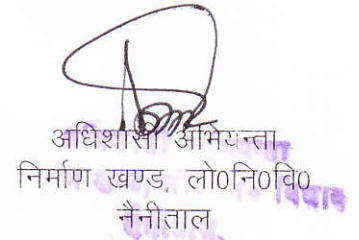 अधिशासी अभियन्ता
निर्माण खण्ड, लो0नि0वि0
नैनीताल